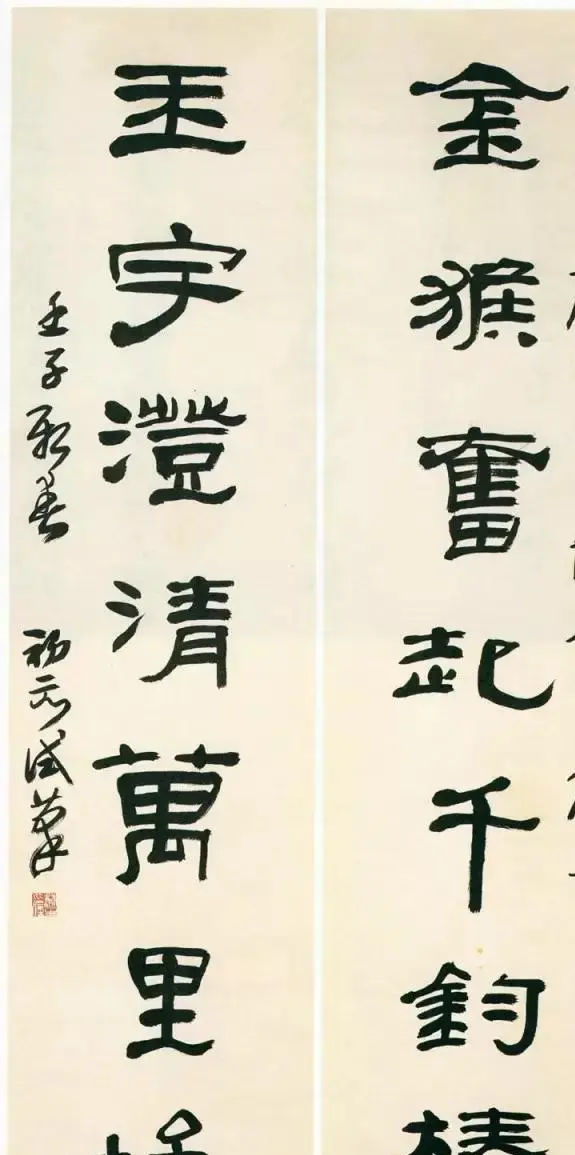 金猴奮起千鈞棒
玉宇澄清萬里
壬子新春 初試筆